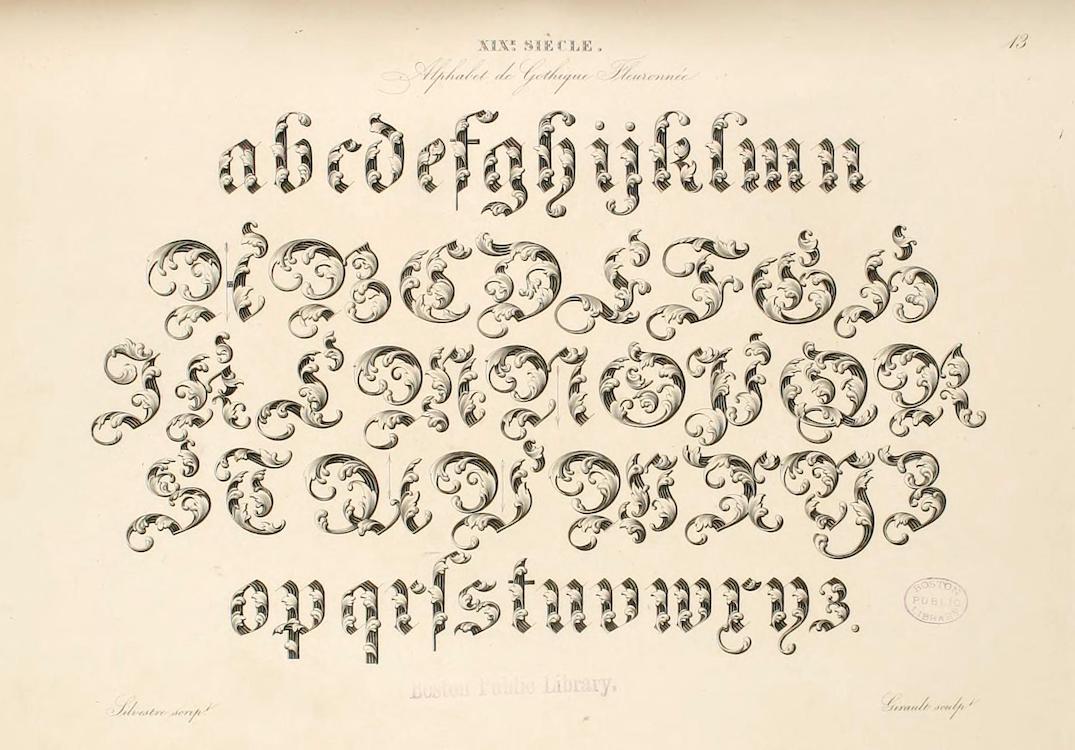 XIXᵉ SIÈCLE.
13
Alphabet de Gothique Fleuronnée
abcdefghijklmn
ABCDEFGH
IKLMNOPQR
STUVWXYZ
opqrſstuvwxyz.
BOSTON
PUBLIC
LIBRARY
Boston Public Library.
Silvestre scripᵗ
Girault sculpᵗ